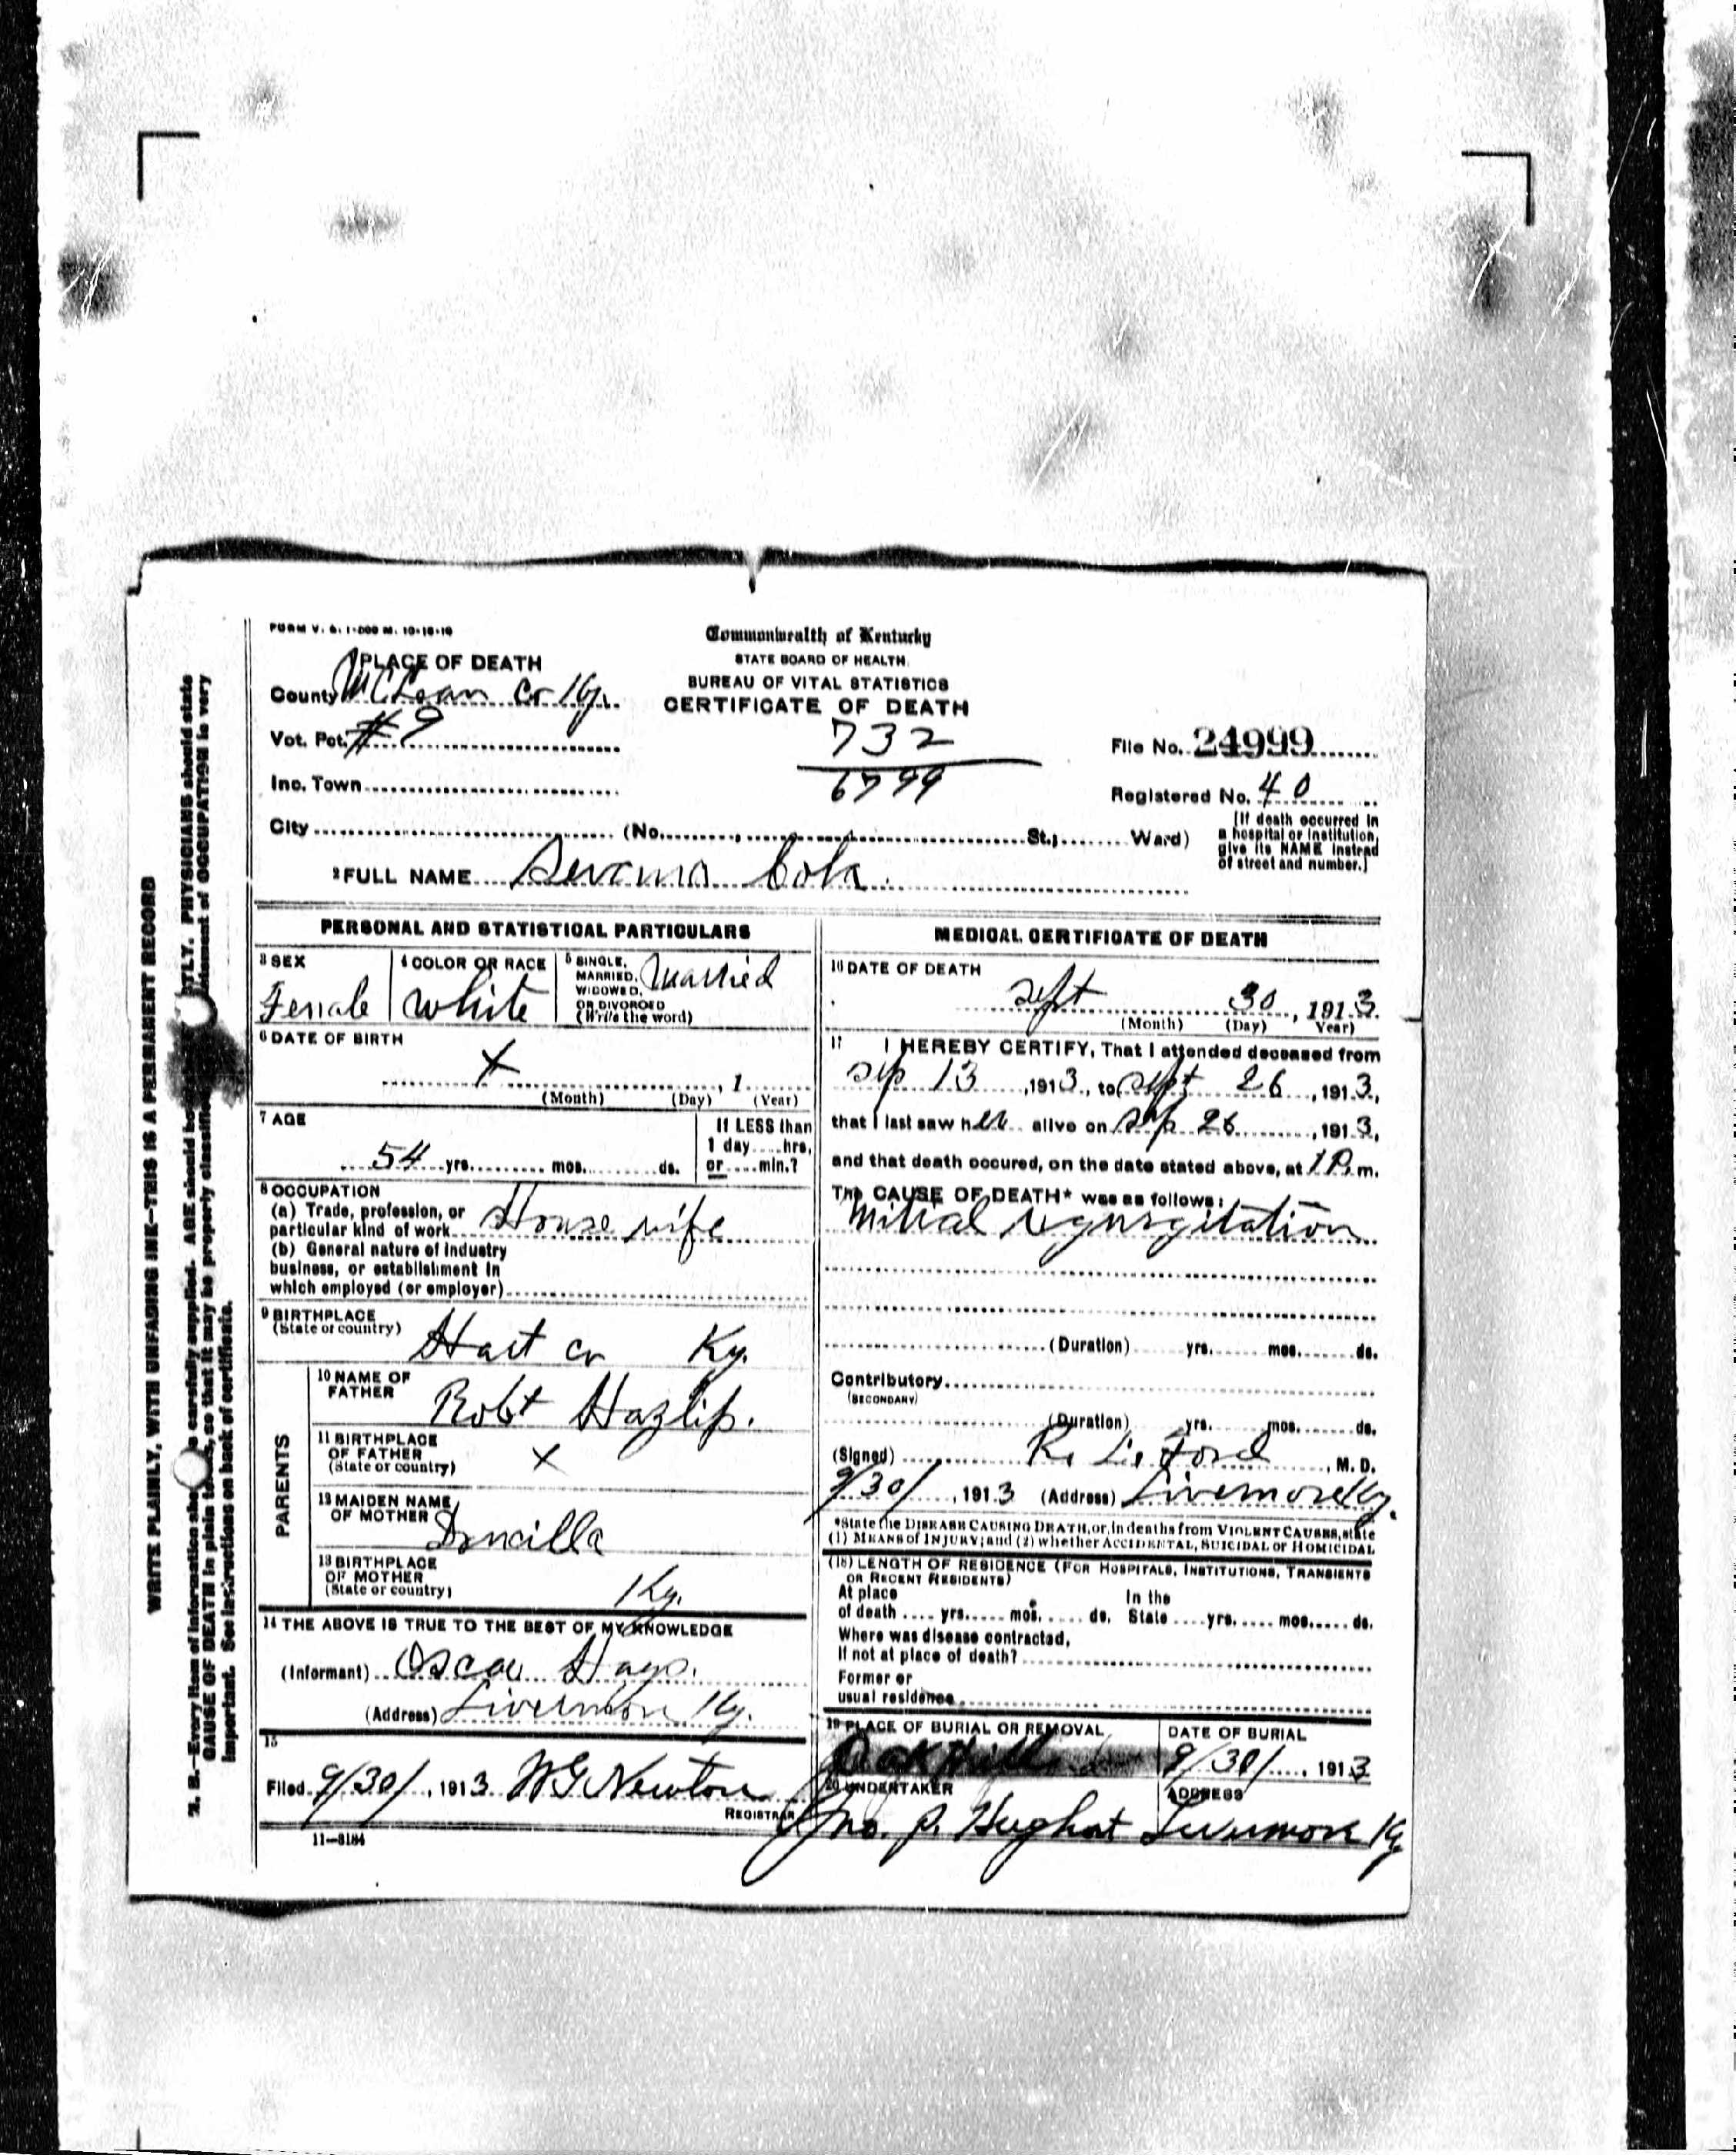 FORM V. S. 1-200 M. 10-18-10
Commonwealth of Kentucky
STATE BOARD OF HEALTH
BUREAU OF VITAL STATISTICS
CERTIFICATE OF DEATH
1 PLACE OF DEATH
County McLean Co Ky.
Vot. Pct. #9
Inc. Town
City (No. , St.; Ward)
732
6799
File No. 24999
Registered No. 40
[If death occurred in
a hospital or institution,
give its NAME instead
of street and number.]
2 FULL NAME
PERSONAL AND STATISTICAL PARTICULARS
3 SEX
Female
4 COLOR OR RACE
White
5 SINGLE,
MARRIED,
WIDOWED,
OR DIVORCED
(Write the word)
Married
6 DATE OF BIRTH
X , 1
(Month) (Day) (Year)
7 AGE
54 yrs. mos. ds.
If LESS than
1 day hrs,
or min.?
8 OCCUPATION
(a) Trade, profession, or
particular kind of work House wife
(b) General nature of industry
business, or establishment in
which employed (or employer)
9 BIRTHPLACE
(State or country)
Hart co Ky.
PARENTS
10 NAME OF
FATHER
Robt Hazlip.
11 BIRTHPLACE
OF FATHER
(State or country)
X
12 MAIDEN NAME
OF MOTHER
13 BIRTHPLACE
OF MOTHER
(State or country)
Ky.
14 THE ABOVE IS TRUE TO THE BEST OF MY KNOWLEDGE
(Informant) Oscar Hays.
(Address) Livermore Ky.
15
Filed 9/30/, 1913 W G Newton
REGISTRAR
11-3184
MEDICAL CERTIFICATE OF DEATH
16 DATE OF DEATH
Sept 30, 1913
(Month) (Day) Year)
17 I HEREBY CERTIFY, That I attended deceased from
Sep 13, 1913, to Sept 26, 1913,
that I last saw her alive on Sep 26, 1913,
and that death occured, on the date stated above, at 1 P. m.
The CAUSE OF DEATH* was as follows:
Mitral regurgitation
(Duration) yrs. mos. ds.
Contributory
(SECONDARY)
(Duration) yrs. mos. ds.
(Signed) R. L. Ford, M. D.
9/30/, 1913 (Address) Livermore Ky.
*State the DISEASE CAUSING DEATH, or, in deaths from VIOLENT CAUSES, state
(1) MEANS of INJURY; and (2) whether ACCIDENTAL, SUICIDAL or HOMICIDAL
(18) LENGTH OF RESIDENCE (FOR HOSPITALS, INSTITUTIONS, TRANSIENTS
OR RECENT RESIDENTS)
At place In the
of death yrs. mos. ds. State yrs. mos. ds.
Where was disease contracted,
If not at place of death?
Former or
usual residence
19 PLACE OF BURIAL OR REMOVAL
Oak Hill
DATE OF BURIAL
9/30/, 1913
20 UNDERTAKER
Jno. P.
ADDRESS
Livermore Ky
WRITE PLAINLY, WITH UNFADING INK—THIS IS A PERMANENT RECORD
N. B.—Every item of information should be carefully supplied. AGE should be PHYSICIANS should state
CAUSE OF DEATH in plain terms, so that it may be properly classified. of OCCUPATION is very
important. See instructions on back of certificate.